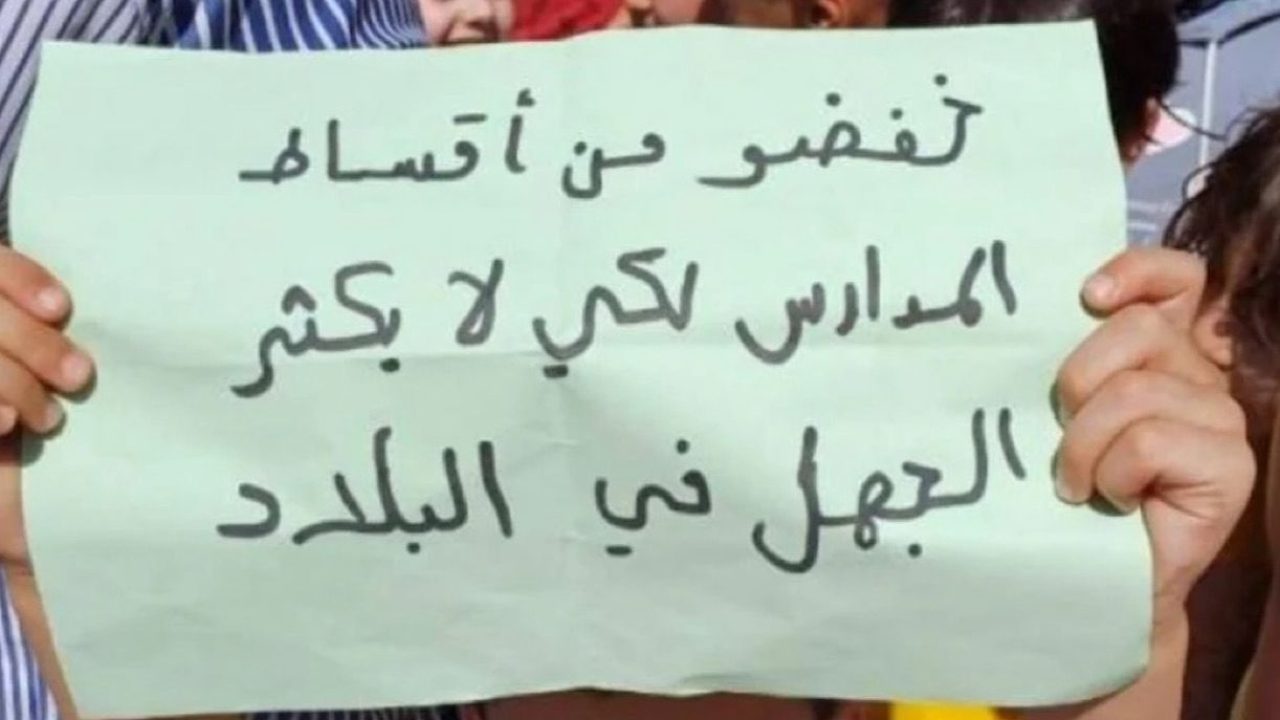 خفضو من أقساط
المدارس لكي لا يكثر
الجهل في البلاد